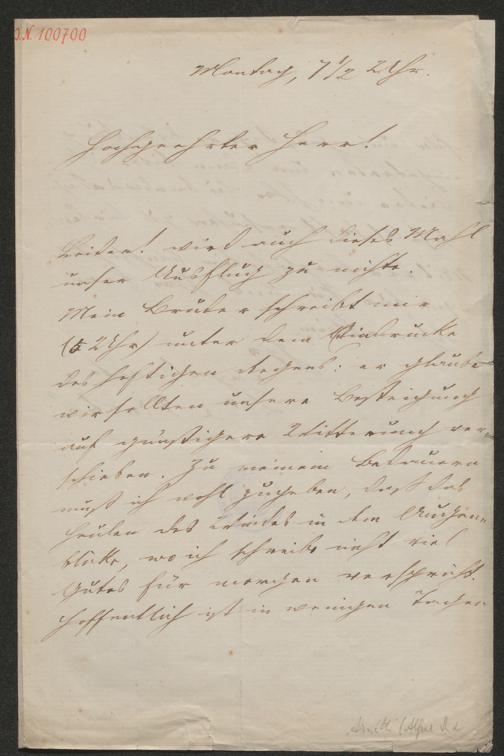 I.N. 100700
Montag, 7 1/2 Uhr.
Hochgeehrter Herr!
Leider! wird auch dieses Mahl
unser Ausflug zu nichte.
Mein Bruder schreibt mir
(5 Uhr) unter dem Eindrucke
des heftigen Regens: er glaube
wir sollten unsere Besteigung
auf günstigere Witterung ver-
schieben. Zu meinem Bedauern
muß ich wohl zugeben, daß das
Heulen des Windes in dem Augen-
blicke, wo ich schreibe nicht viel
Gutes für morgen verspricht.
Hoffentlich ist in wenigen Tagen